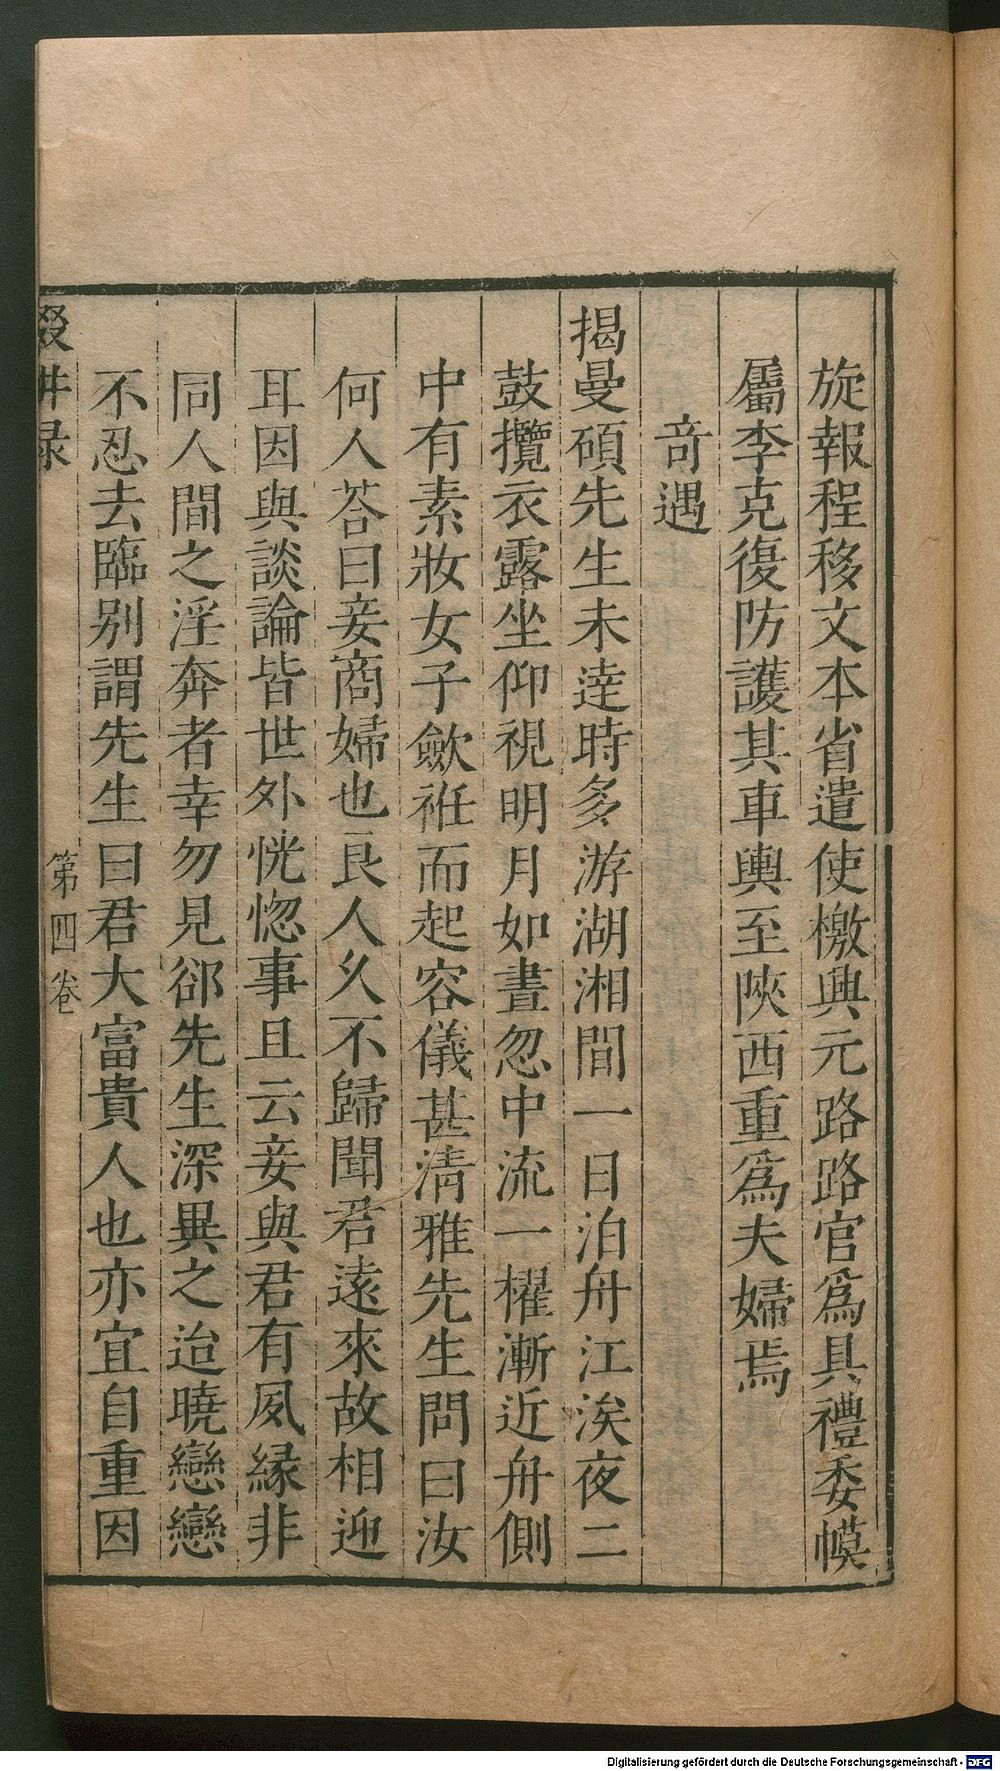 旋報程移文本省遣使檄興元路路官爲具禮委幙
屬李克復防護其車輿至陝西重爲夫婦焉
奇遇
揭曼碩先生未達時多游湖湘間一日泊舟江涘夜二
鼓攬衣露坐仰視明月如晝忽中流一櫂漸近舟側
中有素妝女子歛袵而起容儀甚淸雅先生問曰汝
何人荅曰妾商婦也良人久不歸聞君遠來故相迎
耳因與談論皆世外恍惚事且云妾與君有夙緣非
同人間之淫奔者幸勿見郤先生深異之迨曉戀戀
不忍去臨别謂先生曰君大富貴人也亦宜自重因
輟畊录
第四卷
Digitalisierung gefördert durch die Deutsche Forschungsgemeinschaft - DFG